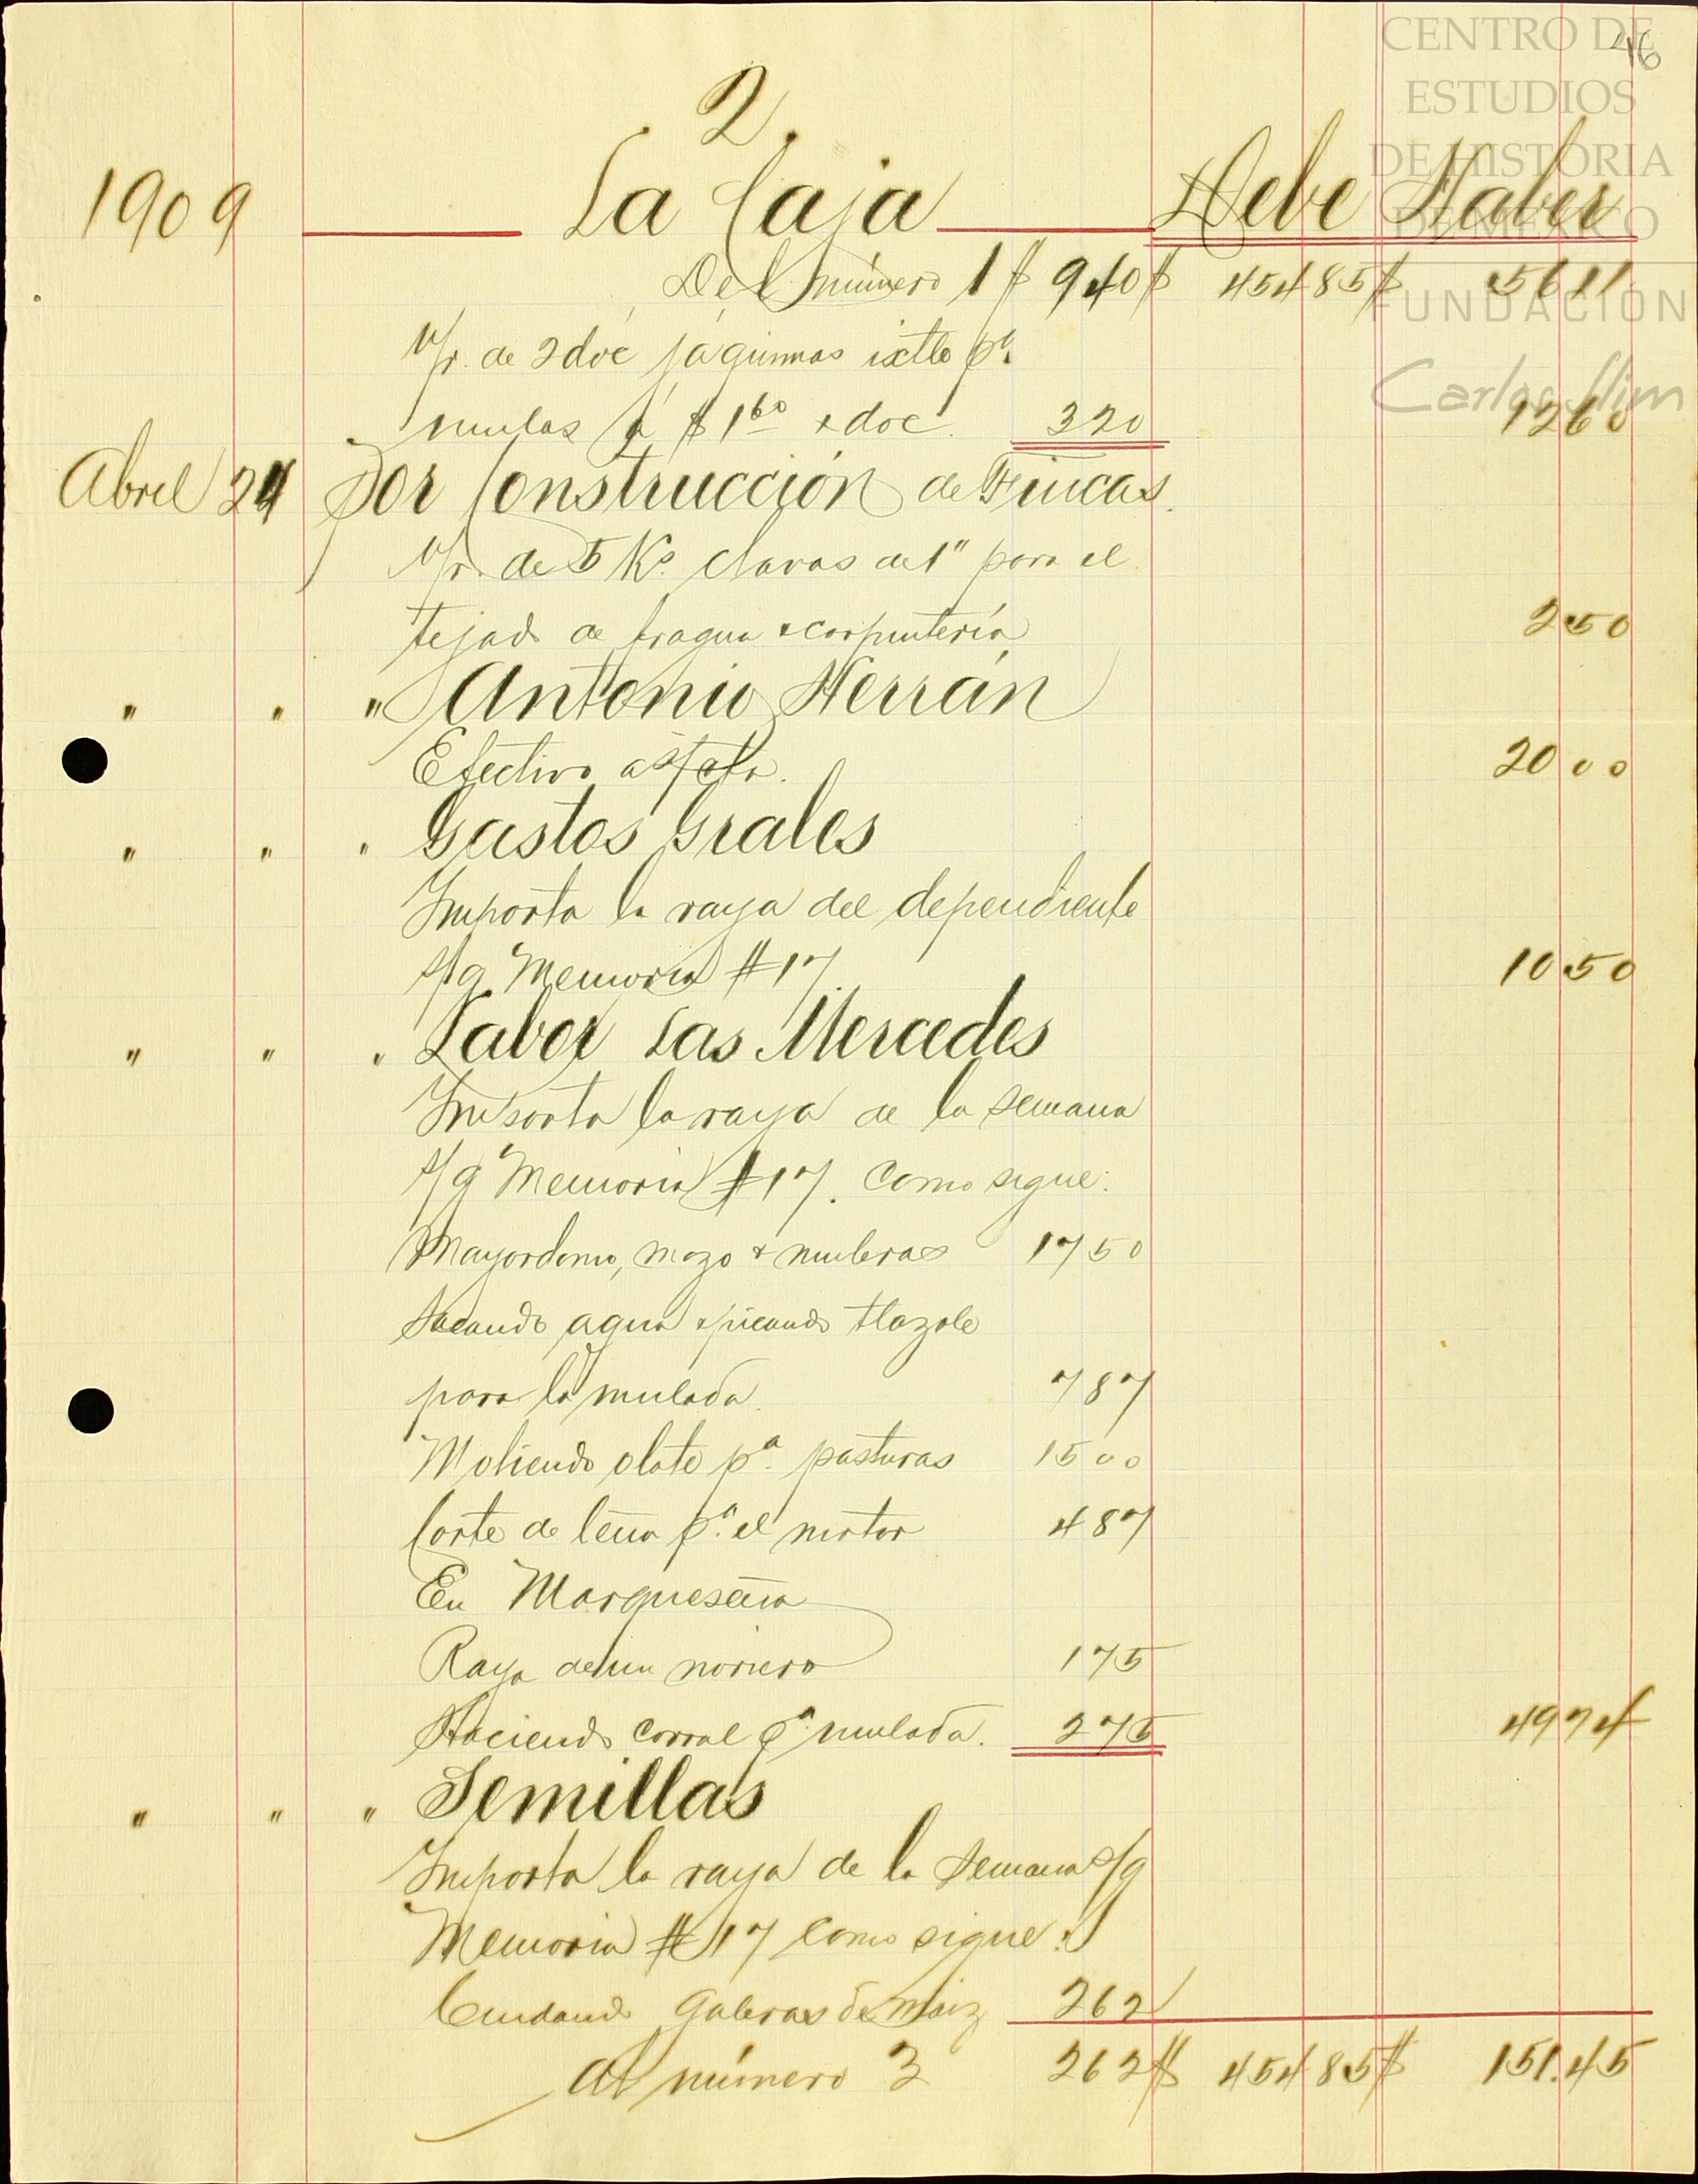 CENTRO DE
ESTUDIOS
DE HISTORIA
DE MÉXICO
FUNDACIÓN
Carlos Slim
46
2
1909 La Caja Debe Haber
Del número 1 $ 940 $ 45485 $ 5611
V/r. de 2 doc jáquimas ixtle pª.
mulas á $ 1 60 " doc. 320 1260
Abril 24 Por Construcción de Fincas.
V/r. de 5 Ks. clavos de 1" para el
tejado de fragua & carpintería 250
" " " Antonio Herrán
Efectivo a s/cta. 2000
" " " Gastos Grales
Importa la raya del dependiente
s/g Memoria #17. 1050
" " " Labor Las Mercedes
Importa la raya de la semana
s/g Memoria #17. como sigue:
Mayordomo, mozo & muleros 1750
Sacando agua & picando tlazole
para la mulada. 787
Moliendo olote pª. pasturas 1500
Corte de leña pª. el motor 487
En Marqueseña
Raya de un noriero 175
Haciendo corral pª mulada. 275 4974
" " " Semillas
Importa la raya de la semana s/g
Memoria #17 como sigue:
Cuidando galeras de maiz 262
Al número 3 262 $ 45485 $ 151.45